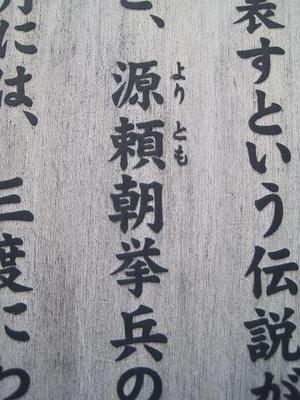 表すという伝説が
と、源頼朝挙兵の
よりとも
には、三度にわ